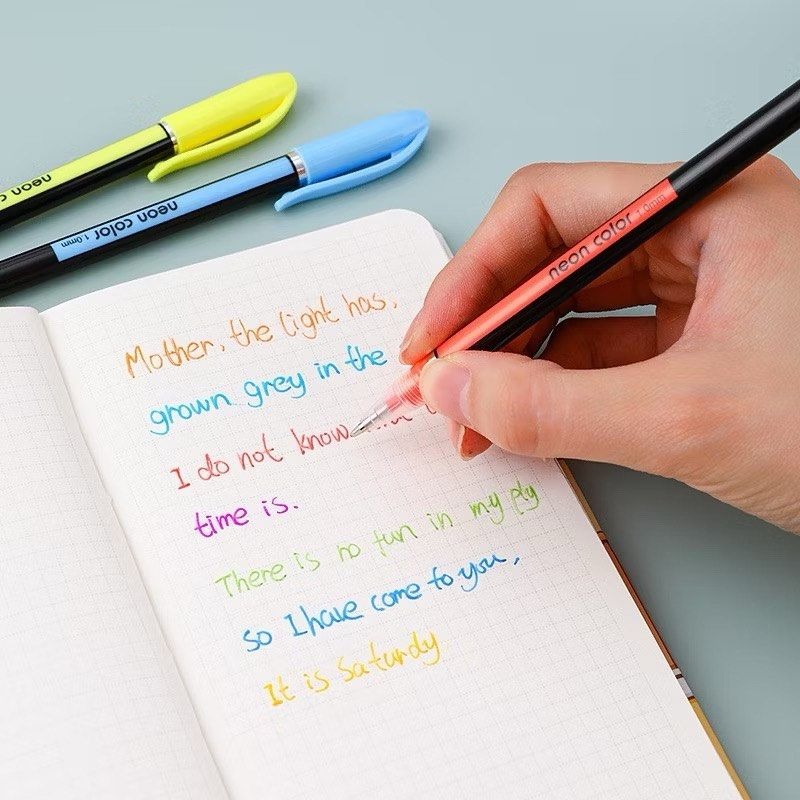 neon c
neon color 1.0mm
neon color 1.0mm
Mother, the light has,
grown grey in the
I do not know
time is.
There is no fun in my ply
so I have come to you,
It is Saturdy